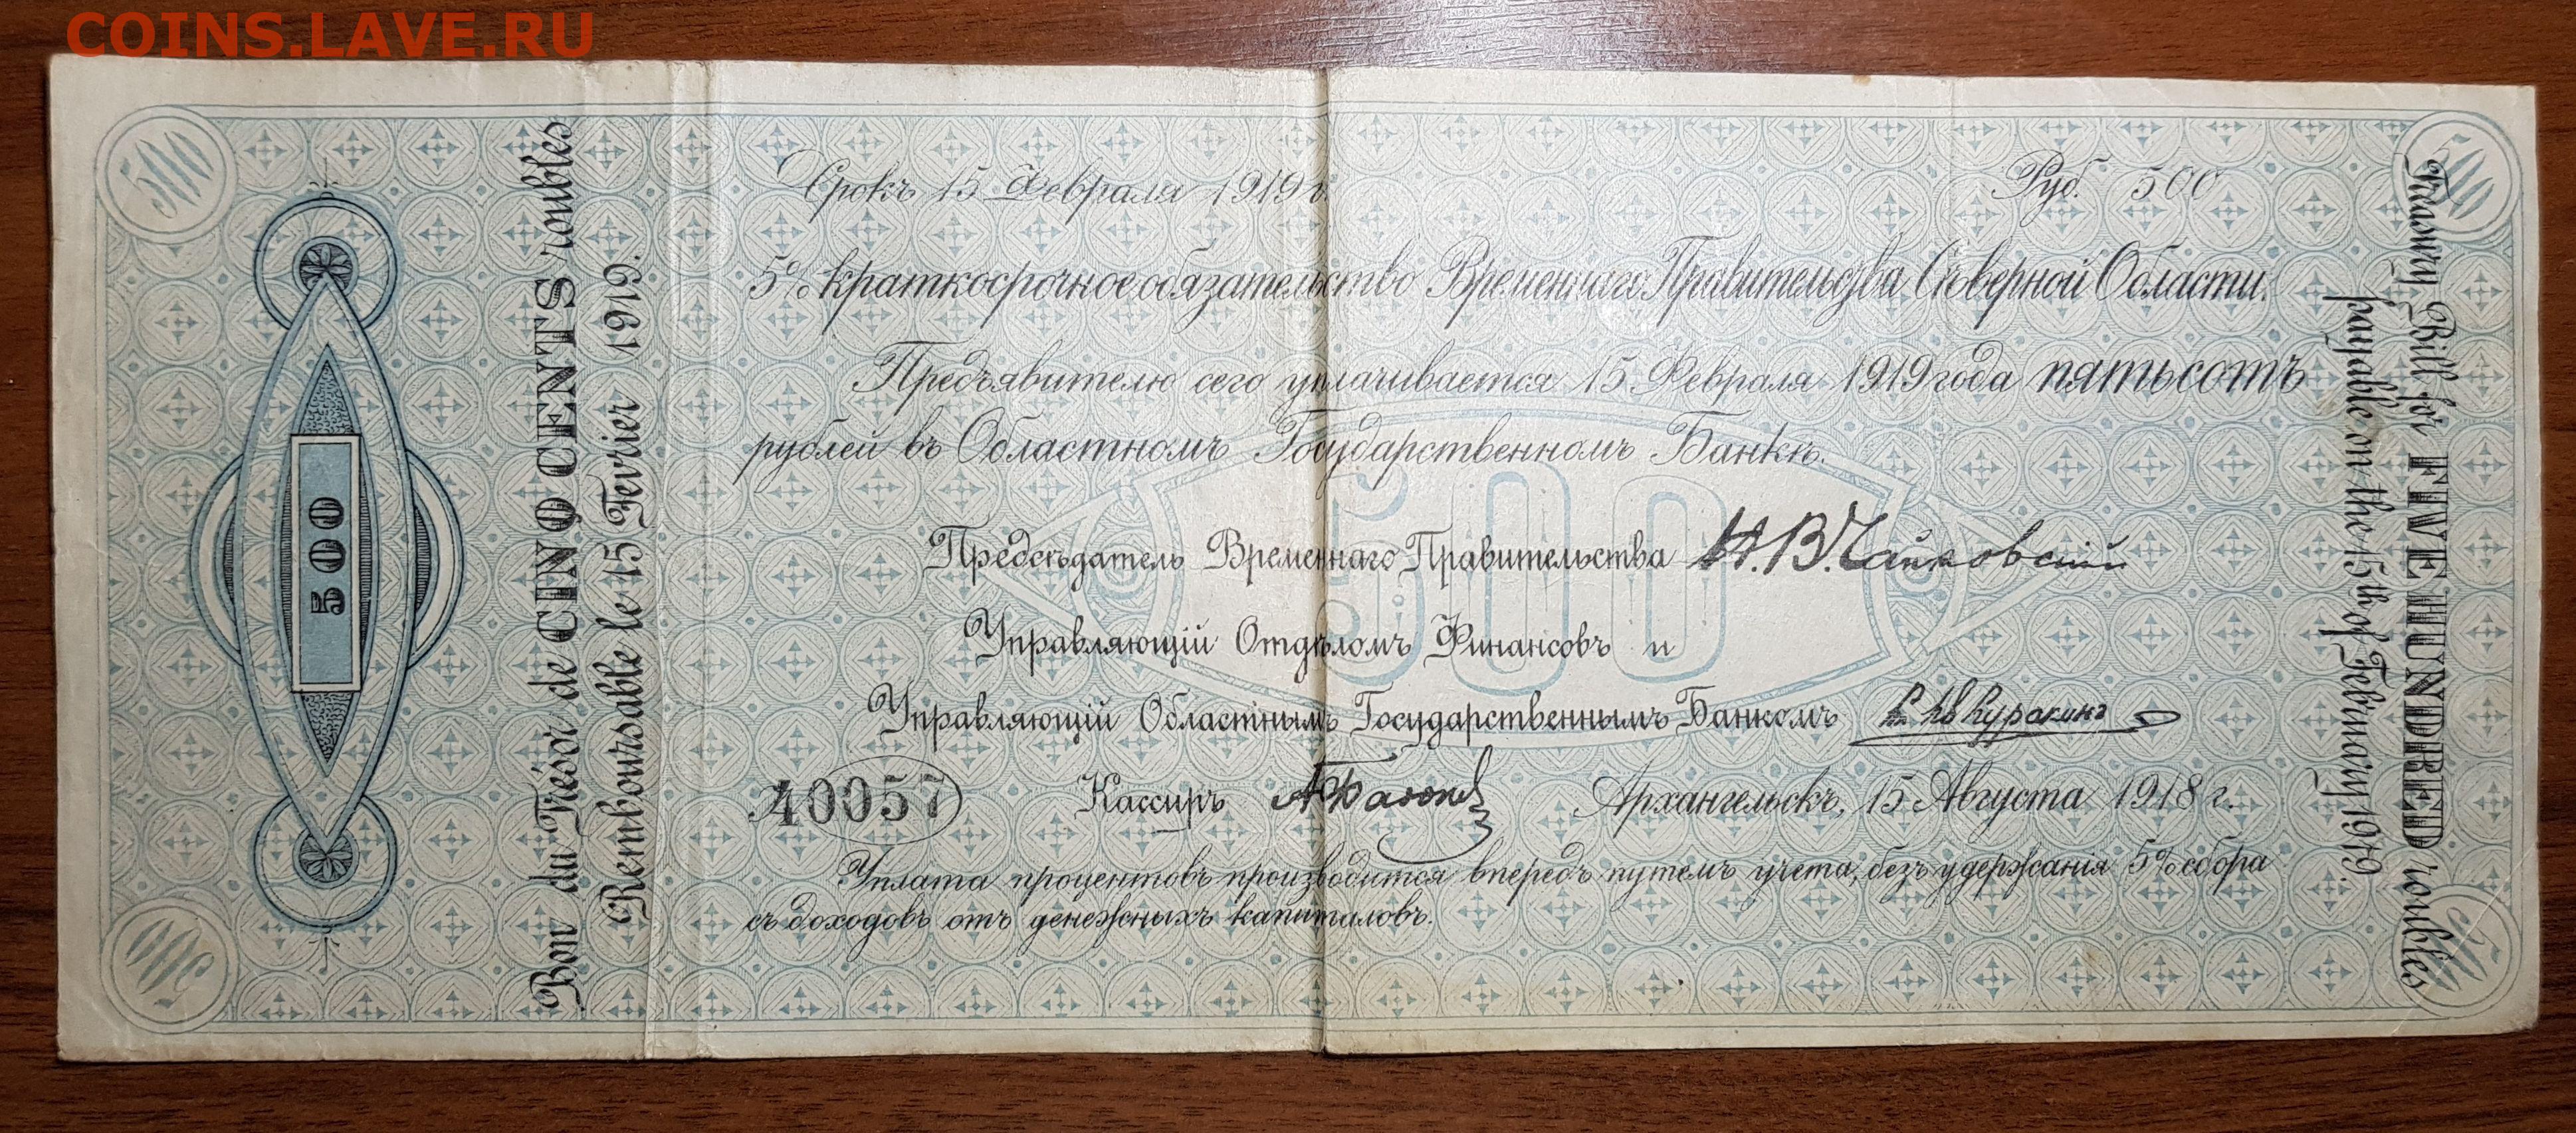 COINS.LAVE.RU
500
500
Срокъ 15 Февраля 1919 г.
Руб. 500
5% краткосрочное обязательство Временнаго Правительства Сѣверной Области.
Предъявителю сего уплачивается 15 Февраля 1919 года пятьсотъ
рублей въ Областномъ Государственномъ Банкѣ.
500
Предсѣдатель Временнаго Правительства Н.В.Чайковскій
Управляющій Отдѣломъ Финансовъ и
Управляющій Областнымъ Государственнымъ Банкомъ Куракинъ
А 0057
Кассиръ
Архангельскъ, 15 Августа 1918 г.
Уплата процентовъ производится впередъ путемъ учета, безъ удержанія 5% сбора
съ доходовъ отъ денежныхъ капиталовъ.
500
500
500
Bon du Trésor de CINQ CENTS roubles
Remboursable le 15 Fevrier 1919.
Treasury Bill for FIVE HUNDRED roubles
payable on the 15th of February 1919.